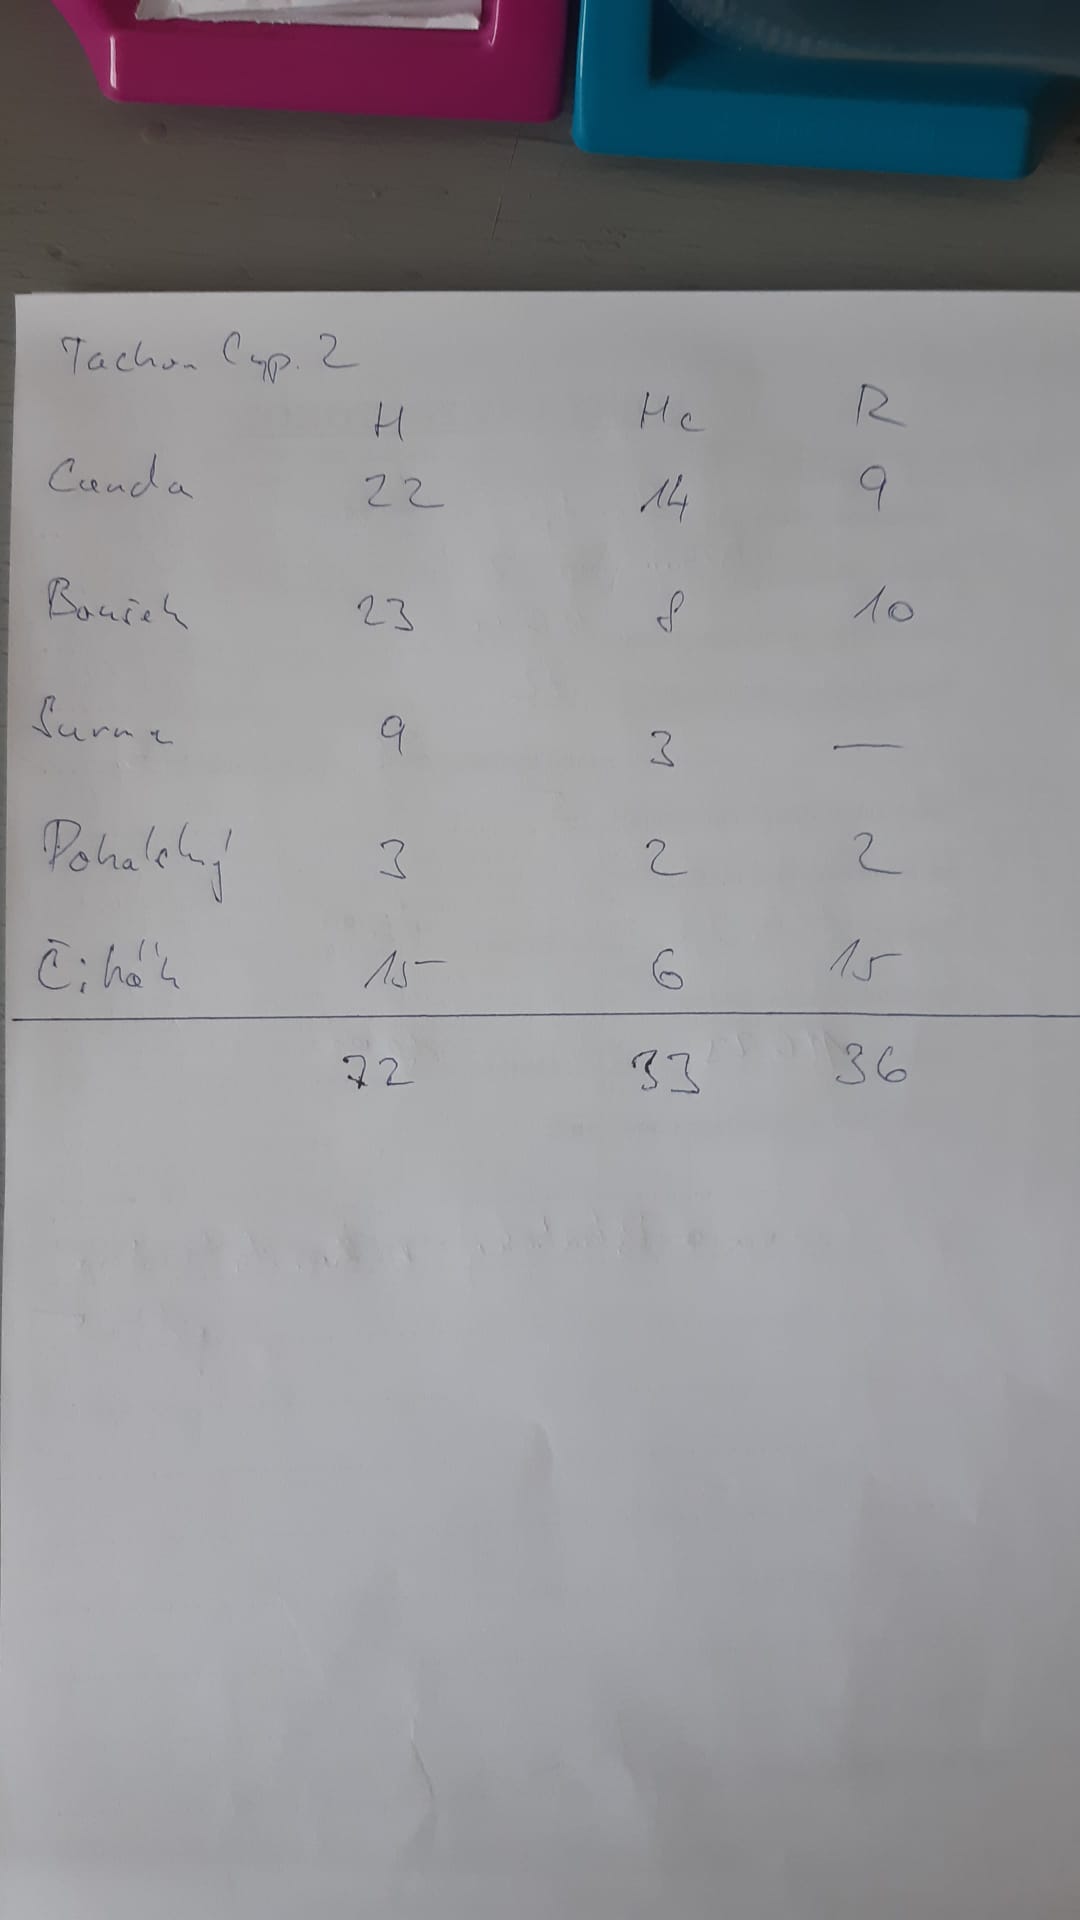 Tachov Cyp. 2
H Hc R
Canda 22 14 9
Bouřek 23 8 10
Surma 9 3 —
Pohalský 3 2 2
Čihák 15 6 15
72 33 36